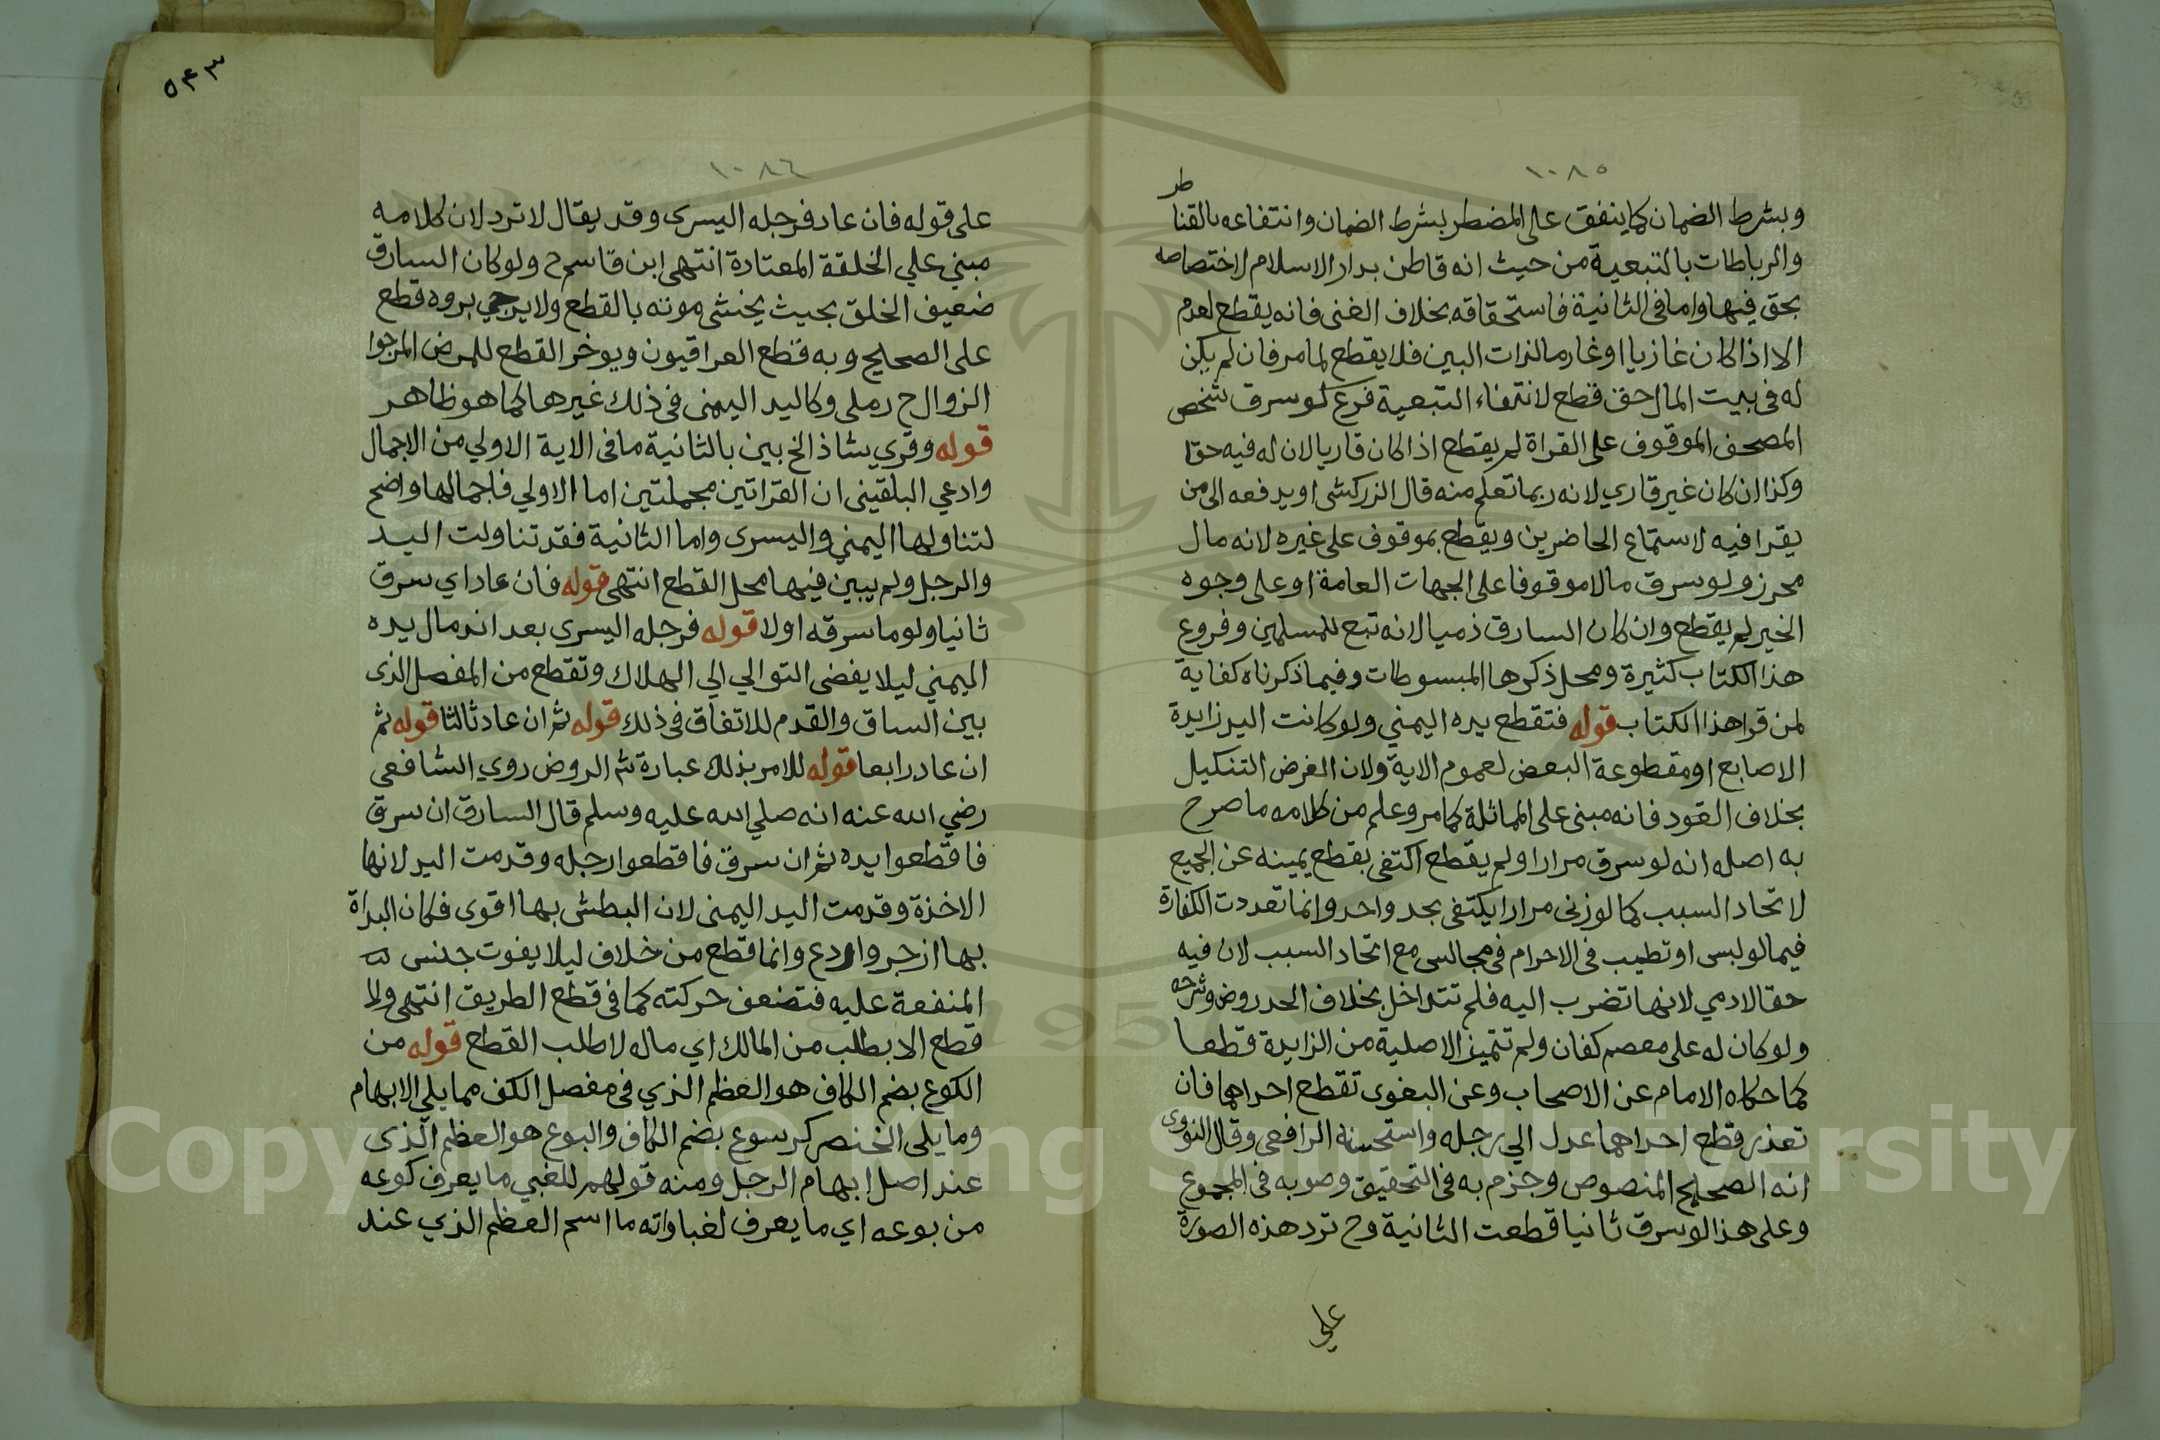 ١٠٨٥
وبشرط الضمان كما ينفق على المضطر بشرط الضمان وانتفاعه بالقناطر
والرباطات بالتبعية من حيث انه قاطن بدار الاسلام لاختصاصه
بحق فيها واما في الثانية فاستحقاقه بخلاف الغنى فانه يقطع لعدم
الا اذا كان غازيا او غارما لذات البين فلا يقطع لما مر فان لم يكن
له في بيت المال حق قطع لانتفاء التبعية فرع لو سرق شخص
المصحف الموقوف على القراة لم يقطع اذا كان قاريا لان له فيه حقا
وكذا ان كان غير قاري لانه ربما تعلم منه قال الزركشى او يدفعه الى من
يقرا فيه لاستماع الحاضرين ويقطع بموقوف على غيره لانه مال
محرز ولو سرق مالا موقوفا على الجهات العامة او على وجوه
الخير لم يقطع وان كان السارق ذميا لانه تبع للمسلمين وفروع
هذا الكتاب كثيرة ومحل ذكرها المبسوطات وفيما ذكرناه كفاية
لمن قرا هذا الكتاب قوله فتقطع يده اليمني ولو كانت اليد زايدة
الاصابع او مقطوعة البعض لعموم الاية ولان الغرض التنكيل
بخلاف القود فانه مبنى على المماثلة كما مر وعلم من كلامه ما صرح
به اصله انه لو سرق مرارا ولم يقطع اكتفى بقطع يمينه عن الجميع
لاتحاد السبب كما لو زنى مرارا يكتفى بحد واحد وانما تعددت الكفارة
فيما لو لبس او تطيب في الاحرام في مجالس مع اتحاد السبب لان فيه
حقا لادمي لانها تضرب اليه فلم تتداخل بخلاف الحد روض وشرحه
ولو كان له على معصم كفان ولم تتميز الاصلية من الزايدة قطعا
كما حكاه الامام عن الاصحاب وعن البغوى تقطع احداهما فان
تعذر قطع احداهما عدل الي رجله واستحسنه الرافعى وقال النووى
انه الصحيح المنصوص وجزم به في التحقيق وصوبه في المجموع
وعلى هذا لو سرق ثانيا قطعت الثانية وح ترد هذه الصورة
علي
٥٤٣
١٠٨٦
على قوله فان عاد فرجله اليسرى وقد يقال لا ترد لان كلامه
مبني علي الخلقة المعتادة انتهى ابن قاسم ح ولو كان السارق
ضعيف الخلق بحيث يخشى موته بالقطع ولا يرجي بروه قطع
على الصحيح وبه قطع العراقيون ويوخر القطع للمرض المرجوا
الزوال ح رملى وكاليد اليمنى في ذلك غيرها كما هو ظاهر
قوله وقري شاذ الخ بين بالثانية ما في الاية الاولي من الاجمال
وادعي البلقينى ان القراتين مجملتين اما الاولي فاجمالها واضح
لتناولها اليمني واليسرى واما الثانية فقد تناولت اليد
والرجل ولم يبين فيها محل القطع انتهى قوله فان عاد اي سرق
ثانيا ولو ما سرقه اولا قوله فرجله اليسرى بعد اندمال يده
اليمني ليلا يفضى التوالي الي الهلاك وتقطع من المفصل الذى
بين الساق والقدم للاتفاق في ذلك قوله ثم ان عاد ثالثا قوله ثم
ان عاد رابعا قوله للامر بذلك عبارة شم الروض روي الشافعى
رضي الله عنه انه صلي الله عليه وسلم قال السارق ان سرق
فاقطعوا يده ثم ان سرق فاقطعوا رجله وقدمت اليد لانها
الاخذة وقدمت اليد اليمنى لان البطش بها اقوى فكان البداة
بها ازجر واردع وانما قطع من خلاف ليلا يفوت جنس
المنفعة عليه فتضعف حركته كما في قطع الطريق انتهى ولا
قطع الا بطلب من المالك اي ماله لا طلب القطع قوله من
الكوع بضم الكاف هو العظم الذي في مفصل الكف مما يلي الابهام
وما يلى الخنصر كرسوع بضم الكاف والبوع هو العظم الذى
عند اصل ابهام الرجل ومنه قولهم للغبي ما يعرف كوعه
من بوعه اي ما يعرف لغباواته ما اسم العظم الذي عند
Copyright © King Saud University
1957